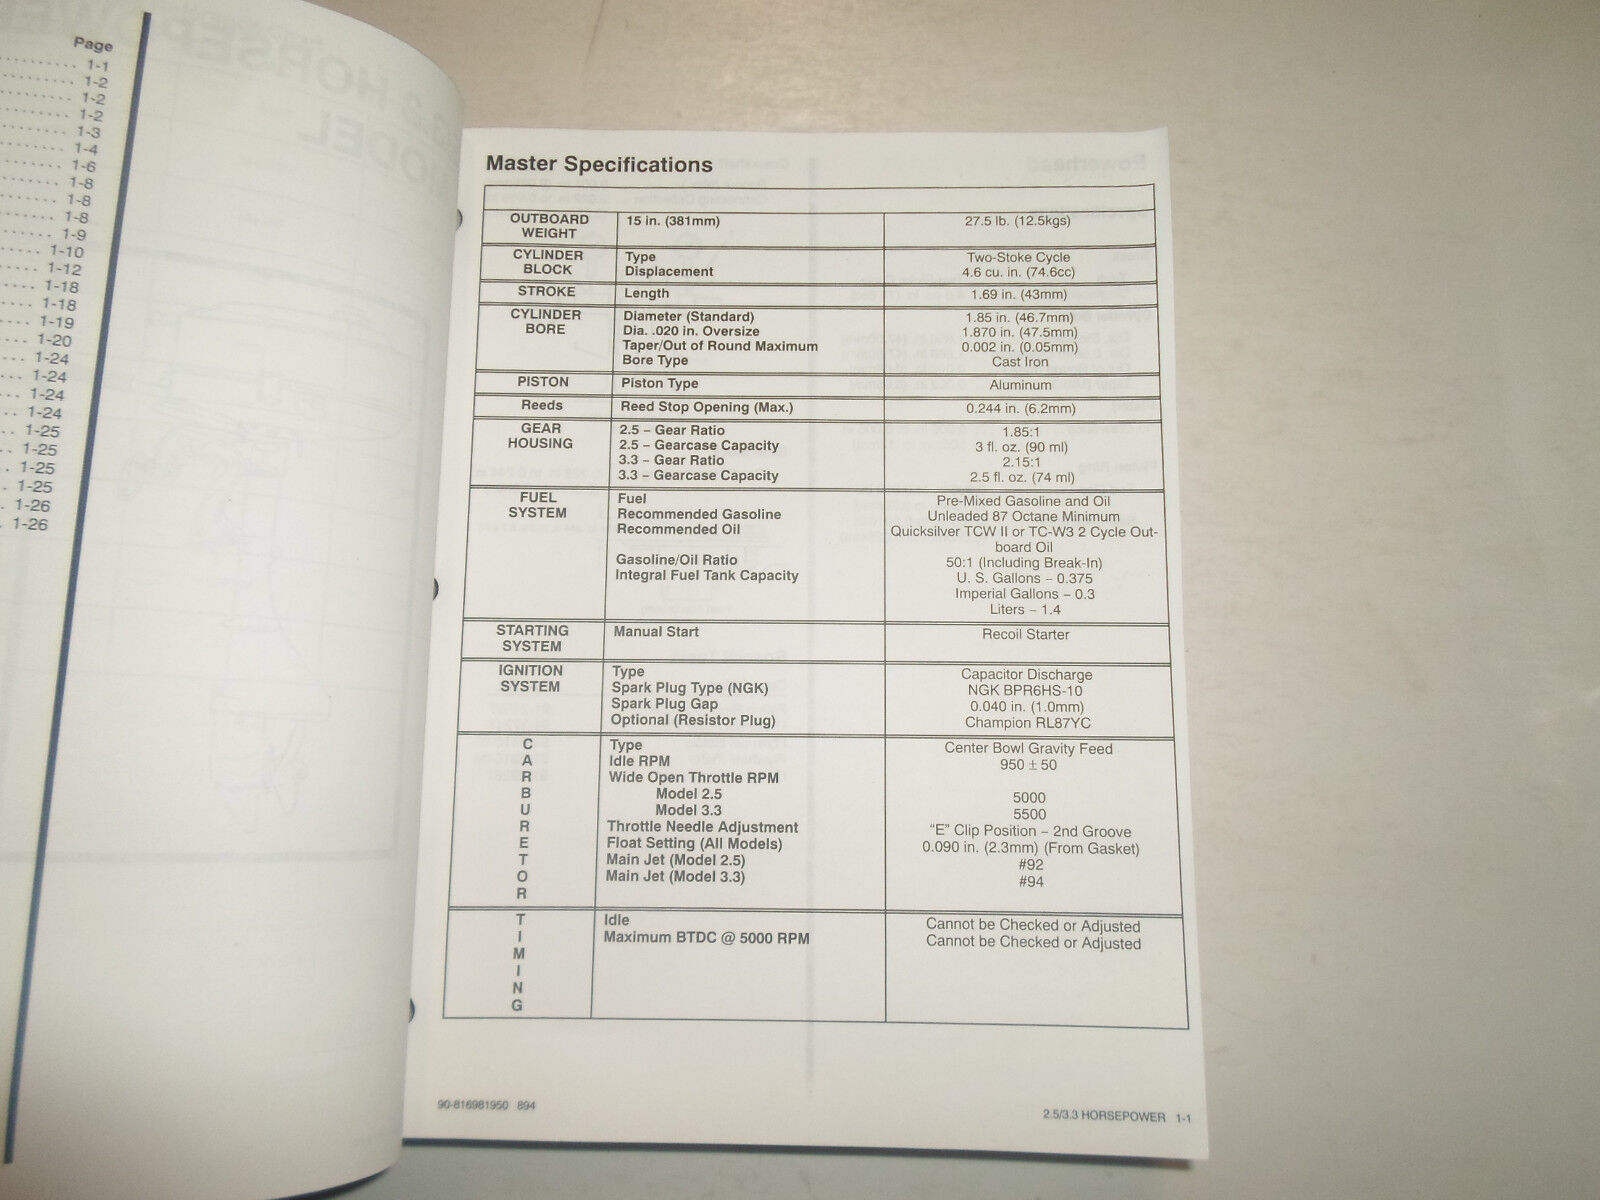 Page
1-1
1-2
1-2
1-2
1-3
1-4
1-6
1-8
1-8
1-8
1-9
1-10
1-12
1-18
1-18
1-19
1-20
1-24
1-24
1-24
1-24
1-25
1-25
1-25
1-25
1-26
1-26
Master Specifications
OUTBOARD WEIGHT
15 in. (381mm)
27.5 lb. (12.5kgs)
CYLINDER BLOCK
Type
Two-Stoke Cycle
Displacement
4.6 cu. in. (74.6cc)
STROKE
Length
1.69 in. (43mm)
CYLINDER BORE
Diameter (Standard)
1.85 in. (46.7mm)
Dia. .020 in. Oversize
1.870 in. (47.5mm)
Taper/Out of Round Maximum
0.002 in. (0.05mm)
Bore Type
Cast Iron
PISTON
Piston Type
Aluminum
Reeds
Reed Stop Opening (Max.)
0.244 in. (6.2mm)
GEAR HOUSING
2.5 – Gear Ratio
1.85:1
2.5 – Gearcase Capacity
3 fl. oz. (90 ml)
3.3 – Gear Ratio
2.15:1
3.3 – Gearcase Capacity
2.5 fl. oz. (74 ml)
FUEL SYSTEM
Fuel
Pre-Mixed Gasoline and Oil
Recommended Gasoline
Unleaded 87 Octane Minimum
Recommended Oil
Quicksilver TCW II or TC-W3 2 Cycle Out-
board Oil
Gasoline/Oil Ratio
50:1 (Including Break-In)
Integral Fuel Tank Capacity
U. S. Gallons – 0.375
Imperial Gallons – 0.3
Liters – 1.4
STARTING SYSTEM
Manual Start
Recoil Starter
IGNITION SYSTEM
Type
Capacitor Discharge
Spark Plug Type (NGK)
NGK BPR6HS-10
Spark Plug Gap
0.040 in. (1.0mm)
Optional (Resistor Plug)
Champion RL87YC
CARBURETOR
Type
Center Bowl Gravity Feed
Idle RPM
950 ± 50
Wide Open Throttle RPM
Model 2.5
5000
Model 3.3
5500
Throttle Needle Adjustment
"E" Clip Position – 2nd Groove
Float Setting (All Models)
0.090 in. (2.3mm) (From Gasket)
Main Jet (Model 2.5)
#92
Main Jet (Model 3.3)
#94
TIMING
Idle
Cannot be Checked or Adjusted
Maximum BTDC @ 5000 RPM
Cannot be Checked or Adjusted
90-816981950 894
2.5/3.3 HORSEPOWER 1-1